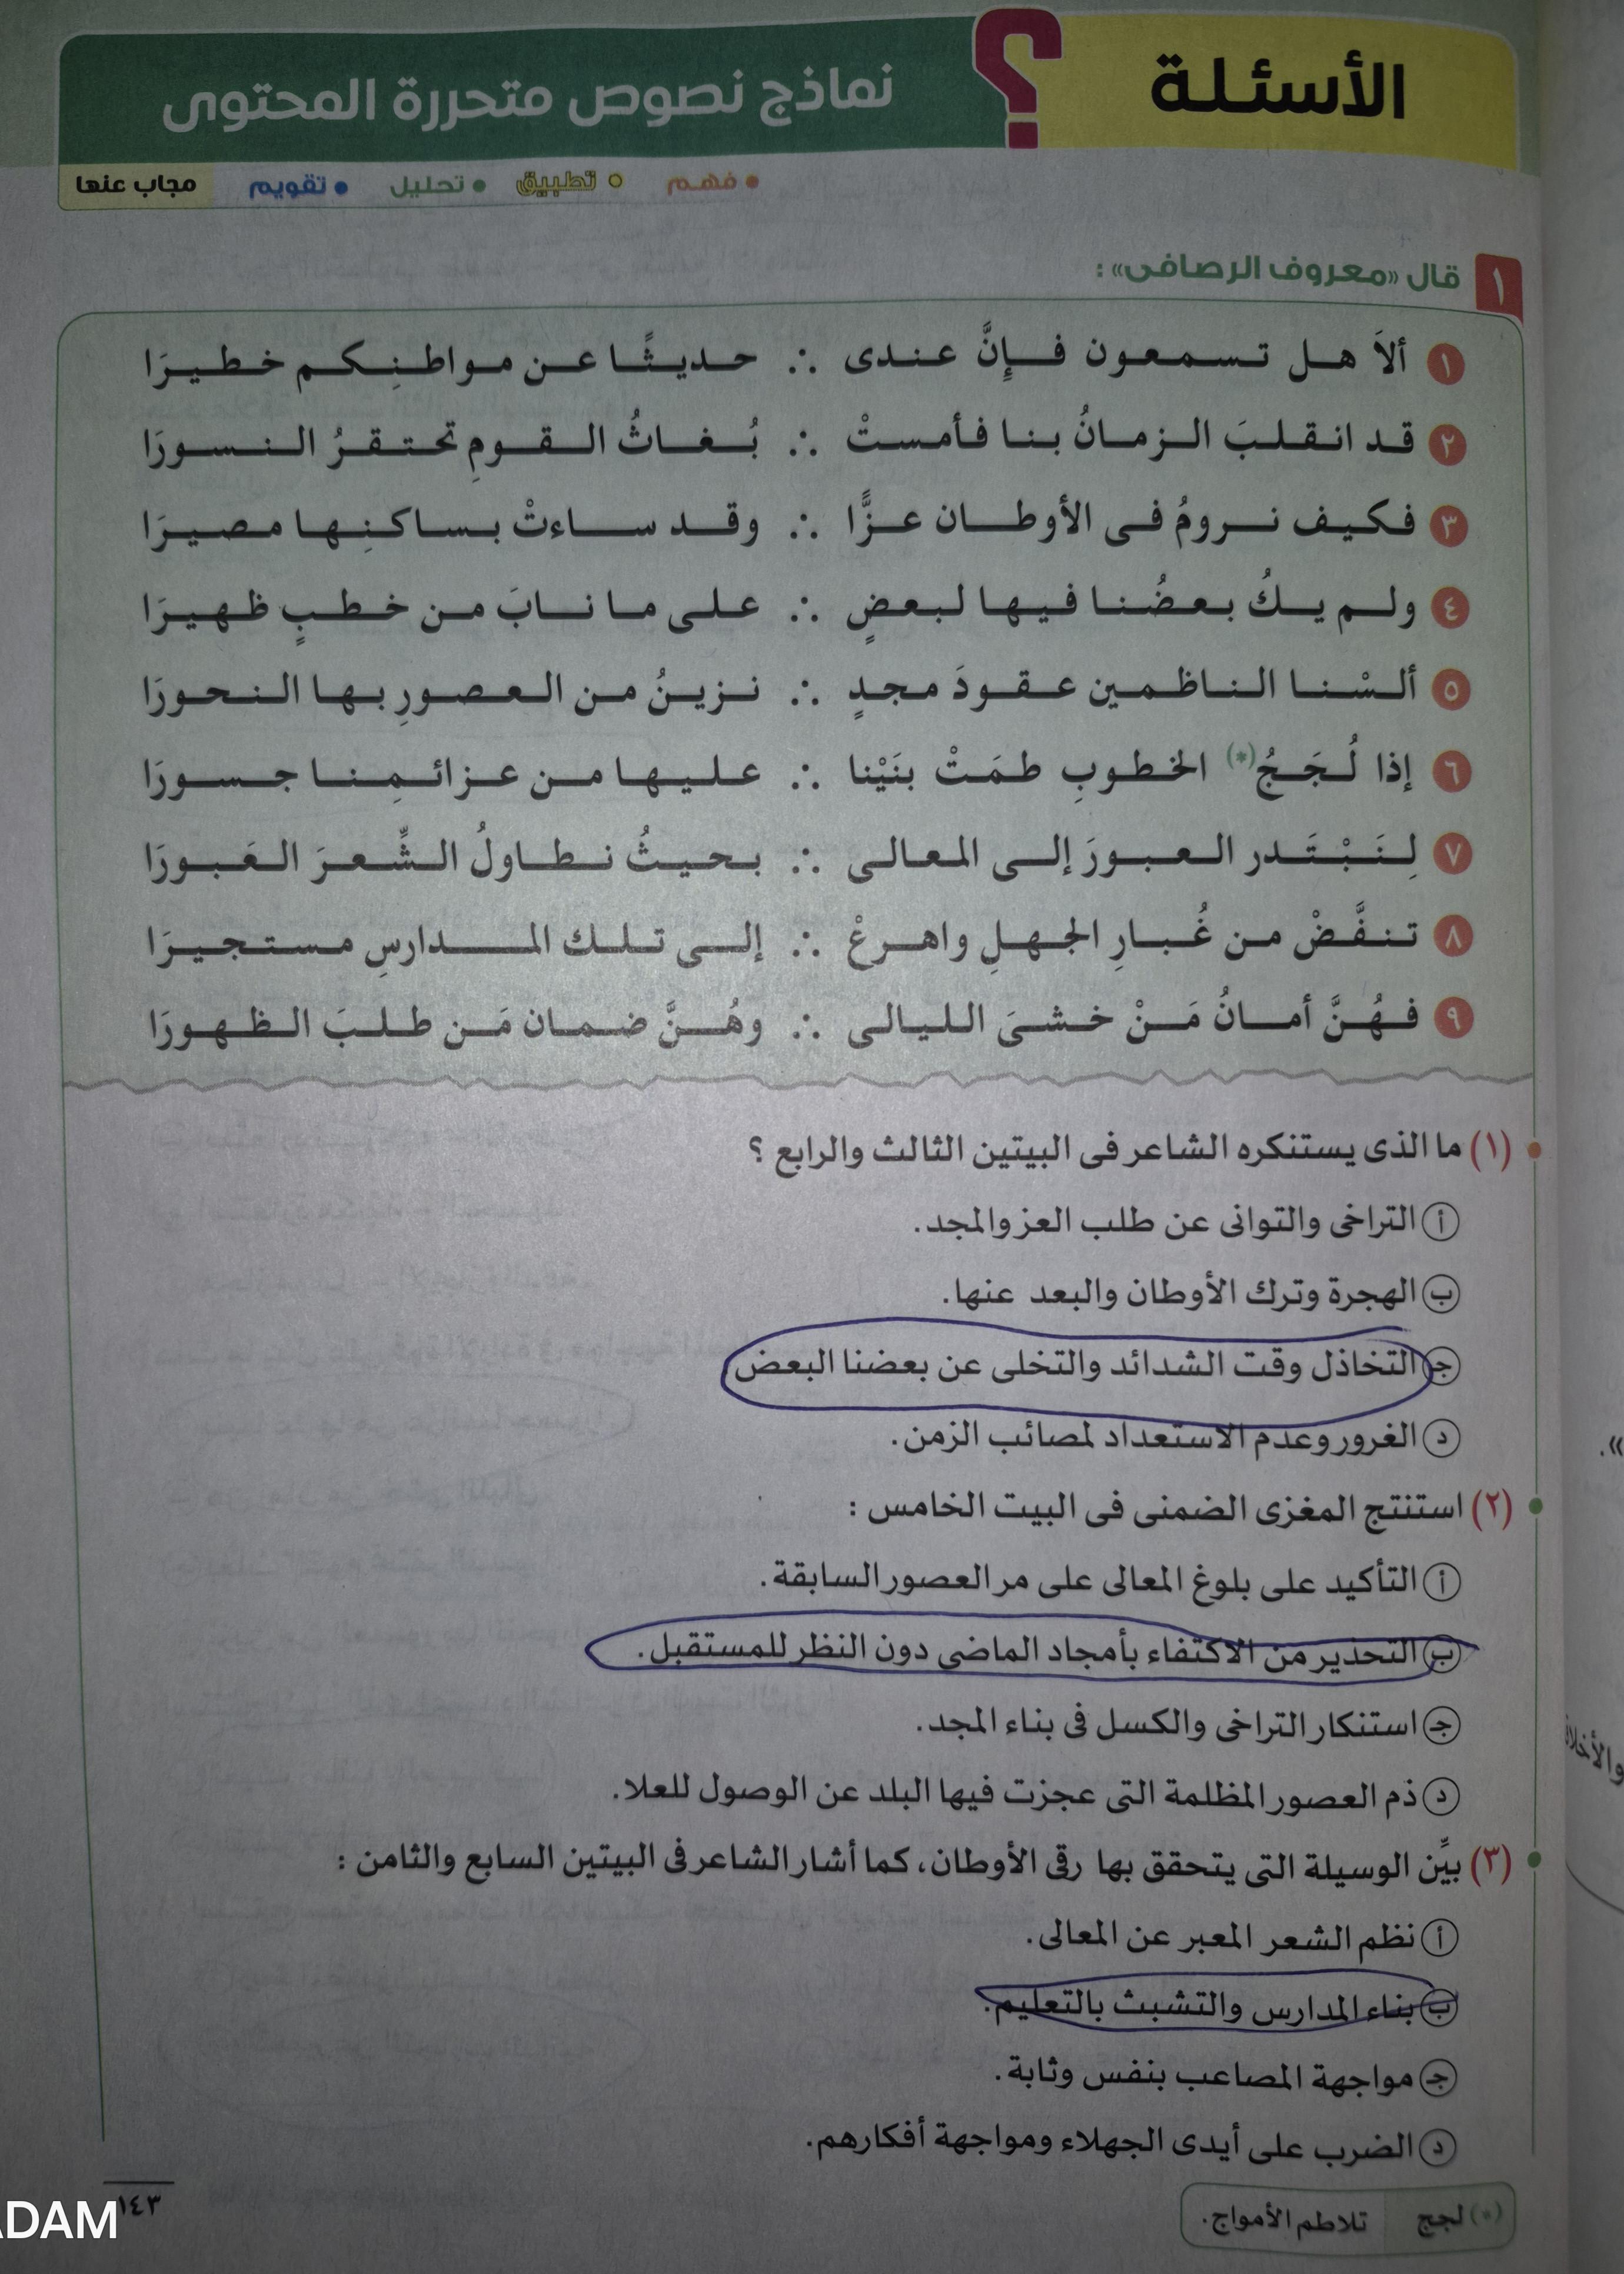 الأسئلة
؟
نماذج نصوص متحررة المحتوى
• فهم • تطبيق • تحليل • تقويم مجاب عنها
١ قال «معروف الرصافى» :
١ ألاَ هل تسمعون فإنَّ عندى ∴ حديثًا عن مواطنِكم خطيرَا
٢ قد انقلبَ الزمانُ بنا فأمستْ ∴ بُغاثُ القومِ تحتقرُ النسورَا
٣ فكيف نرومُ فى الأوطان عزًّا ∴ وقد ساءتْ بساكنِها مصيرَا
٤ ولم يكُ بعضُنا فيها لبعضٍ ∴ على ما نابَ من خطبٍ ظهيرَا
٥ ألسْنا الناظمين عقودَ مجدٍ ∴ نزينُ من العصورِ بها النحورَا
٦ إذا لُججُ(*) الخطوبِ طمَتْ بنَيْنا ∴ عليها من عزائمِنا جسورَا
٧ لِنَبْتَدر العبورَ إلى المعالى ∴ بحيثُ نطاولُ الشِّعرَ العَبورَا
٨ تنفَّضْ من غُبارِ الجهلِ واهرعْ ∴ إلى تلك المدارسِ مستجيرَا
٩ فهُنَّ أمانُ مَنْ خشىَ الليالى ∴ وهُنَّ ضمان مَن طلبَ الظهورَا
(١) ما الذى يستنكره الشاعر فى البيتين الثالث والرابع ؟
أ التراخى والتوانى عن طلب العز والمجد.
ب الهجرة وترك الأوطان والبعد عنها.
ج التخاذل وقت الشدائد والتخلى عن بعضنا البعض
د الغرور وعدم الاستعداد لمصائب الزمن.
(٢) استنتج المغزى الضمنى فى البيت الخامس :
أ التأكيد على بلوغ المعالى على مر العصور السابقة.
ب التحذير من الاكتفاء بأمجاد الماضى دون النظر للمستقبل.
ج استنكار التراخى والكسل فى بناء المجد.
د ذم العصور المظلمة التى عجزت فيها البلد عن الوصول للعلا.
(٣) بيِّن الوسيلة التى يتحقق بها رقى الأوطان، كما أشار الشاعر فى البيتين السابع والثامن :
أ نظم الشعر المعبر عن المعالى.
ب بناء المدارس والتشبث بالتعليم.
ج مواجهة المصاعب بنفس وثابة.
د الضرب على أيدى الجهلاء ومواجهة أفكارهم.
(*) لجج تلاطم الأمواج.
١٤٣
ADAM
».